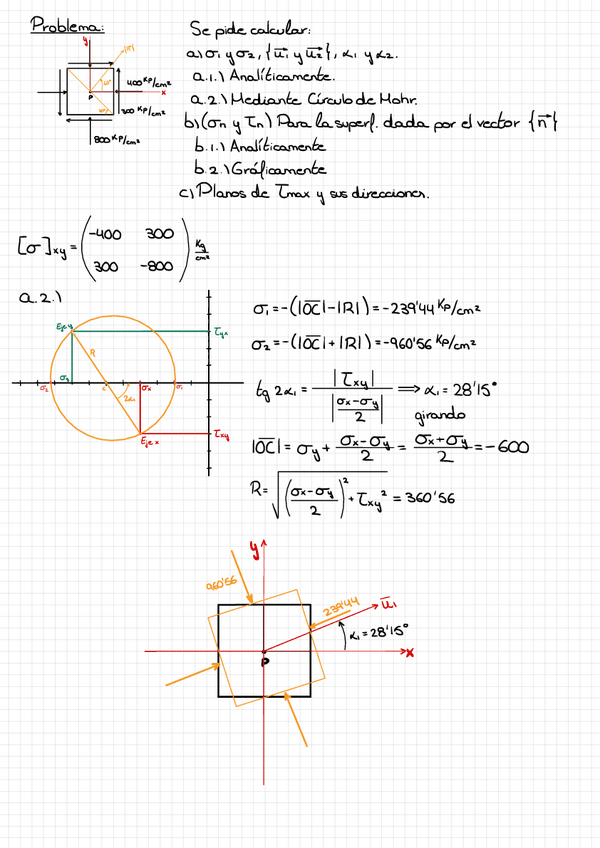 Problema:
Se pide calcular:
a) σ₁ y σ₂, {u⃗₁ y u⃗₂}, α₁ y α₂.
a.1.) Analíticamente.
a.2.) Mediante Círculo de Mohr.
b) (σn y τn) Para la superf. dada por el vector {n⃗}
b.1.) Analíticamente
b.2.) Gráficamente
c) Planos de τmax y sus direcciones.
y
x
P
400 Kp/cm²
300 Kp/cm²
800 Kp/cm²
[σ]xy = (-400 300
300 -800) Kg/cm²
a.2.)
Eje y
τyx
R
σ₂
σy
c
2α₁
σx
σ₁
Eje x
τxy
σ₁ = -(|OC| - |R|) = -239'44 Kp/cm²
σ₂ = -(|OC| + |R|) = -960'56 Kp/cm²
tg 2α₁ = |τxy| / |(σx-σy)/2| ⟹ α₁ = 28'15°
girando
|OC| = σy + (σx-σy)/2 = (σx+σy)/2 = -600
R = √(((σx-σy)/2)² + τxy²) = 360'56
y
960'56
239'44
u₁
α₁ = 28'15°
x
P